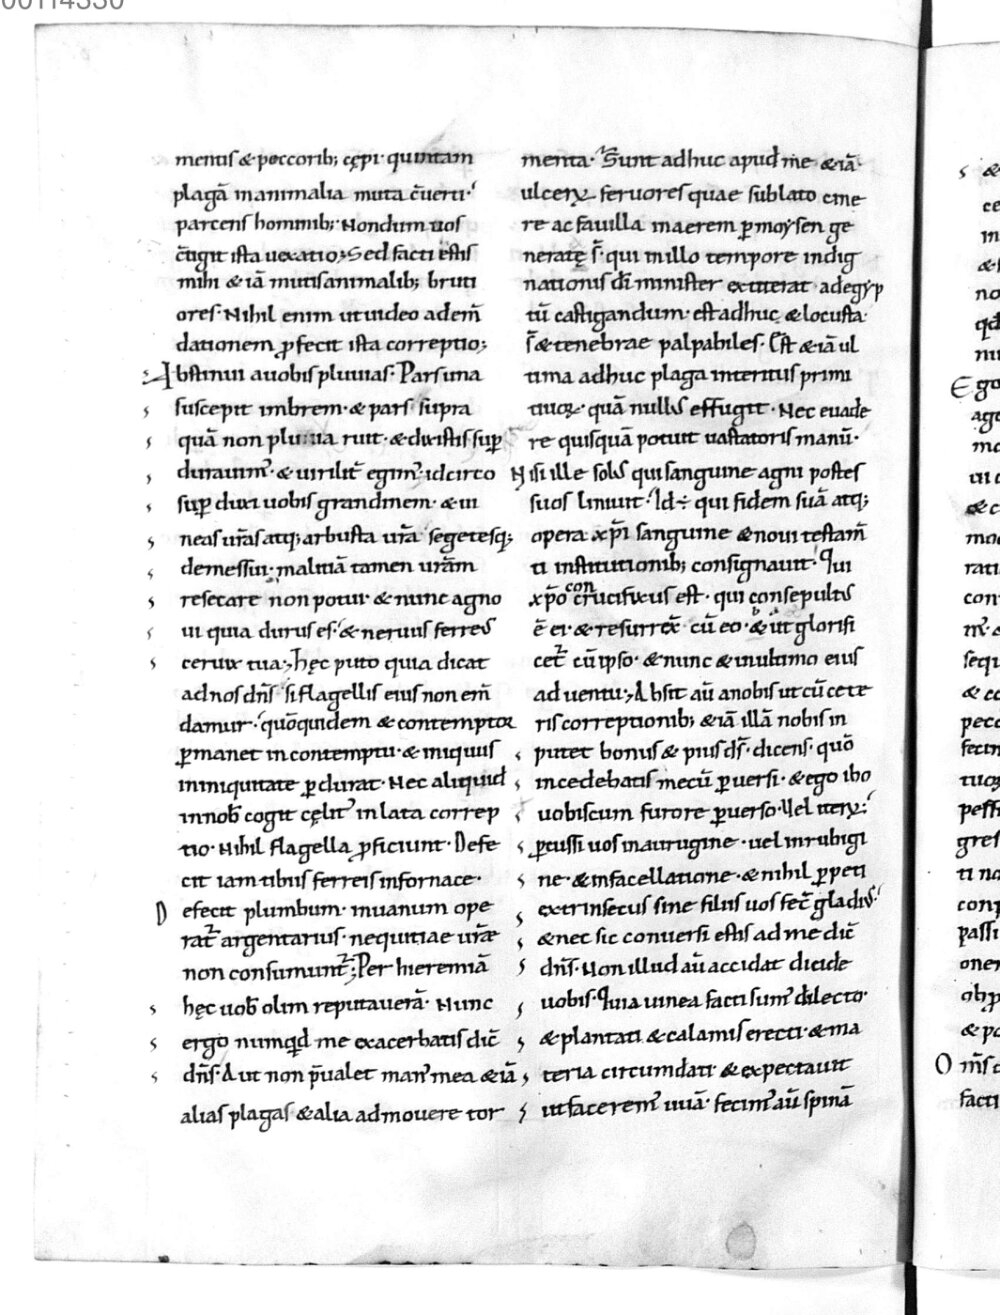 mentis & peccorib; cępi quintam
plagā in animalia muta c̄uerti
parcens hominib; Nondum uos
c̄tigit ista uexatio; Sed facti estis
mihi & iā mutis animalib; bruti
ores. Nihil enim ut uideo adem̄
dationem ꝓfecit ista correptio;
Abstinui a uobis pluuias. Pars una
suscepit imbrem & pars supra
quā non pluuia ruit & christis suꝑ
durauim̉ & uirilit̉ egim̉ idcirco
suꝑ duxi uobis grandinem & ui
neas ur̄as atq; arbusta ur̄a segetesq;
demessui malitiā tamen ur̄am
resecare non potui & nunc agno
ui quia durus es & neruus ferreus
ceruix tua; hęc puto quia dicat
ad nos dn̄s si flagellis eius non em̄
damur quōquidem & contemptor
ꝑmanet in contemptu & iniquus
in iniquitate ꝑdurat. Nec aliquid
in nob̄ cogit cęlit̉ inlata correp
tio. Nihil flagella ꝓficiunt. Defe
cit iam tibiis ferreis in fornace
Defecit plumbum in uanum ope
rat̉ argentarius nequitiae ur̄ae
non consumunt̉; Per hieremiā
hęc uob̄ olim reputauerā. Nunc
ergo numqd me exacerbatis dic̄
dn̄s. Aut non p̄ualet man̉ mea & iā
alias plagas & alia admouere tor
menta. Sunt adhuc apud me & iā
ulceꝝ feruores quae sublato cine
re ac fauilla in aerem ꝑ moẏsen ge
neratę s̄ qui in illo tempore indig
nationis dī minister extiterat ad egẏp
tū castigandum est adhuc & locusta
s̄ & tenebrae palpabiles. Est & iā ul
tima adhuc plaga interitus primi
tiuoꝝ quā nullus effugit. Nec euade
re quisquā potuit uastatoris manū
Nisi ille solus qui sanguine agni postes
suos liniuit. Id ÷ qui fidem suā atq;
opera xp̄i sanguine & noui testam̄
ti institutionib; consignauit. Qui
xp̄o con crucifixus est qui consepultus
ē ei & resurrex̄ cū eo & ut glorifi
cet̉ cū ipso & nunc & in ultimo eius
aduentu; Absit au̅ a nobis ut cū cete
ris correptionib; & iā illā nobis in
putet bonus & pius ds̄ dicens quō
incedebatis mecū ꝑuersi & ego ibo
uobiscum furore ꝑuerso. Uel iteꝝ
ꝑcussi uos in aurugine uel in rubigi
ne & in facellatione & nihil ꝓpeti
extrinsecus sine filiis uos fec̄ gladius
& nec sic conuersi estis ad me dic̄
dn̄s. Non illud au̅ accidat dici de
uobis. Quia uinea facti sum̉ dilecto
& plantati & calamis erecti & ma
teria circumdati & expectauit
ut facerem̉ uuā fecim̉ au̅ spinā